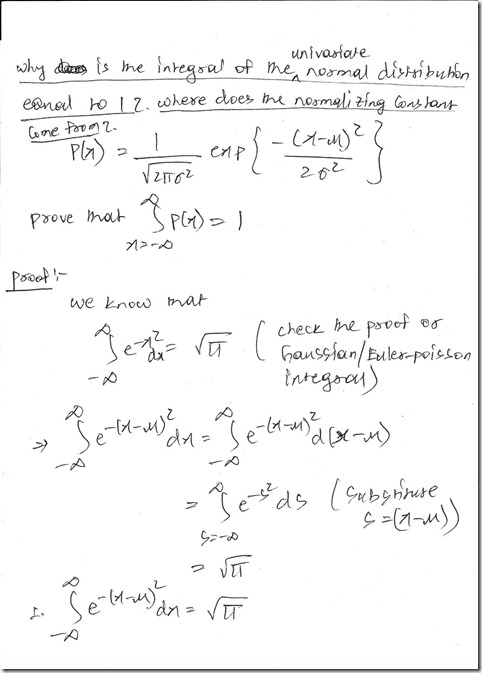 univariate
why is the integral of the ^ normal distribution
equal to 1?. where does the normalizing constant
come from?.
P(x) = 1/√(2πσ²) exp{ -(x-μ)²/2σ² }
prove that ∫_{x=-∞}^{∞} P(x) = 1
proof:-
we know that
∫_{-∞}^{∞} e^{-x²} dx = √π (check the proof of
Gaussian/Euler-poisson
integral)
⇒ ∫_{-∞}^{∞} e^{-(x-μ)²} dx = ∫_{-∞}^{∞} e^{-(x-μ)²} d(x-μ)
= ∫_{s=-∞}^{∞} e^{-s²} ds (substitute
s=(x-μ))
= √π
∴ ∫_{-∞}^{∞} e^{-(x-μ)²} dx = √π